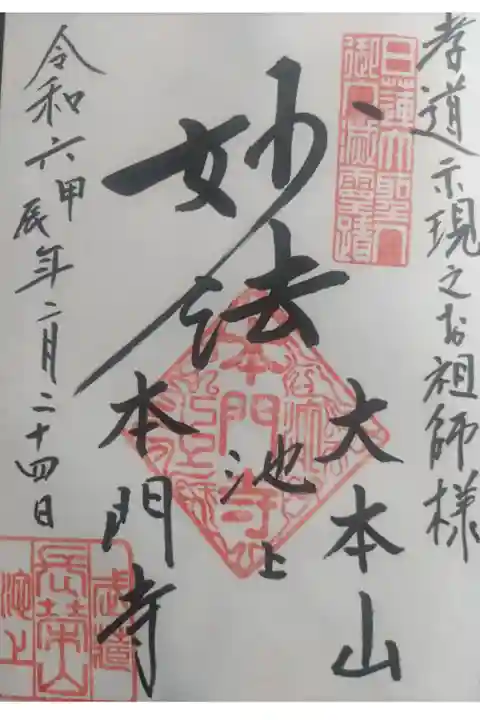 孝道示現之お祖師様
日蓮大聖人
御入滅霊蹟
妙法
大本山
池上
本門寺
本門寺
令和六甲辰年二月二十四日
武蔵
長榮山
池上